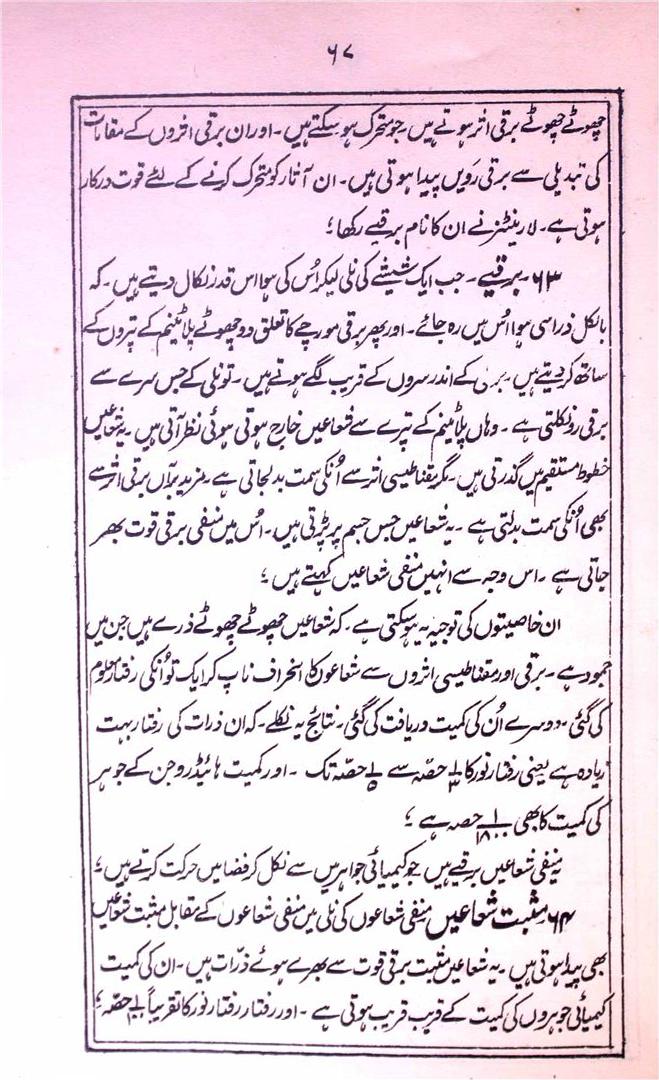 ۶۷
چھوٹے چھوٹے برقی اثر ہوتے ہیں۔ جو متحرک ہو سکتے ہیں۔ اور ان برقی اثروں کے مقامات
کی تبدیلی سے برقی رَویں پیدا ہوتی ہیں۔ ان آثار کو متحرک کرنے کے لئے قوت درکار
ہوتی ہے۔ لارینٹز نے ان کا نام برقیے رکھا؛
۶۳۔ برقیے۔ جب ایک شیشے کی نلی لیکر اُس کی ہوا اس قدر نکال دیتے ہیں۔ کہ
بالکل ذرا سی ہوا اُس میں رہ جائے۔ اور پھر برقی مورچے کا تعلق دو چھوٹے پلاٹینم کے پتروں کے
ساتھ کر دیتے ہیں۔ کے اندر سروں کے قریب لگے ہوتے ہیں۔ تو نلی کے جس سرے سے
برقی رو نکلتی ہے۔ وہاں پلاٹینم کے پترے سے شعاعیں خارج ہوتی ہوئی نظر آتی ہیں۔ یہ شعاعیں
خطوط مستقیم میں گذرتی ہیں۔ مگر مقناطیسی اثر سے اُنکی سمت بدلجاتی ہے۔ مزید برآں برقی اثر سے
بھی اُنکی سمت بدلتی ہے۔ یہ شعاعیں جس جسم پر پڑتی ہیں۔ اُس میں منفی برقی قوت بھر
جاتی ہے۔ اس وجہ سے انہیں منفی شعاعیں کہتے ہیں؛
ان خاصیتوں کی توجیہ یہ ہو سکتی ہے۔ کہ شعاعیں چھوٹے چھوٹے ذرے ہیں جن میں
جمود ہے۔ برقی اور مقناطیسی اثروں سے شعاعوں کا انحراف ناپ کر ایک تو اُنکی رفتار معلوم
کی گئی۔ دوسرے اُن کی کمیت دریافت کی گئی۔ نتائج یہ نکلے۔ کہ ان ذرات کی رفتار بہت
زیادہ ہے یعنی رفتار نور کا ۱/۳ حصہ سے ۱/۵ حصّہ تک۔ اور کمیت ہائیڈروجن کے جوہر
کی کمیت کا بھی ۱/۱۸۰۰ حصہ ہے؛
یہ منفی شعاعیں برقیے ہیں۔ جو کیمیائی جواہر میں سے نکل کر فضا میں حرکت کرتے ہیں؛
۶۴۔ مثبت شعاعیں منفی شعاعوں کی نلی میں منفی شعاعوں کے مقابل مثبت شعاعیں
بھی پیدا ہوتی ہیں۔ یہ شعاعیں مثبت برقی قوت سے بھرے ہوئے ذرّات ہیں۔ ان کی کمیت
کیمیائی جوہروں کی کمیت کے قریب قریب ہوتی ہے۔ اور رفتار رفتار نور کا تقریباً حصّہ؛